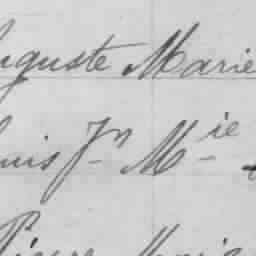 uguste Marie
ouis Jn Mie
Pierre Marie